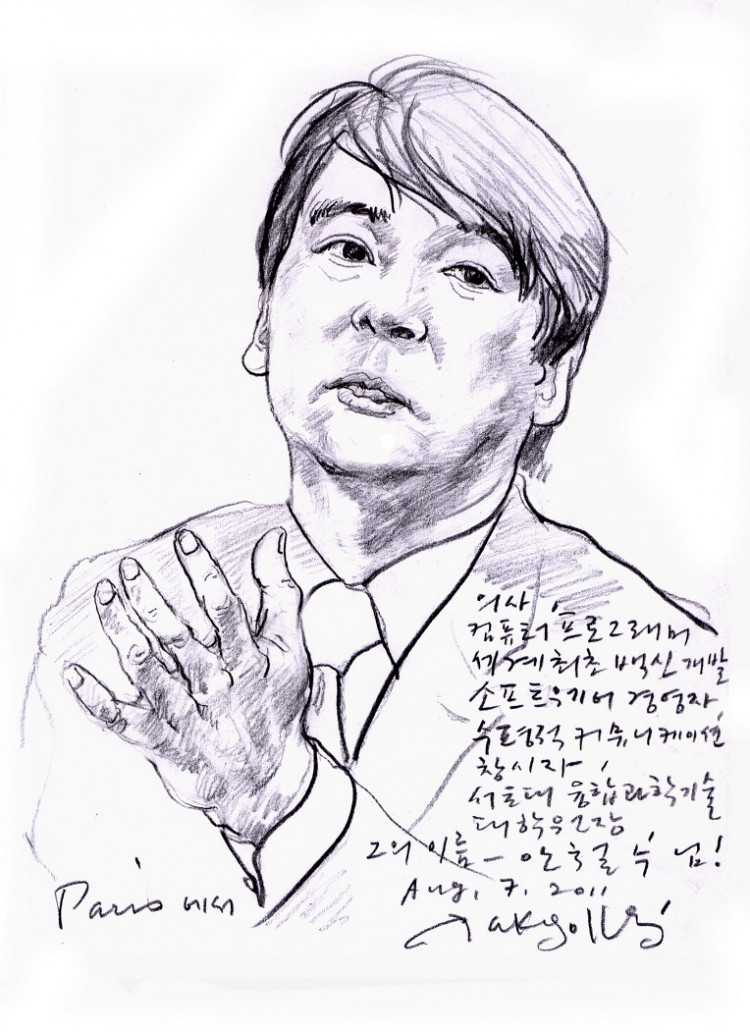 의사,
컴퓨터 프로그래머
세계최초 백신 개발
소프트웨어 경영자
수평적 커뮤니케이션
창시자,
서울대 융합과학기술
대학원장
그의 이름 - 안철수 님!
Aug. 7. 2011
Paris 에서